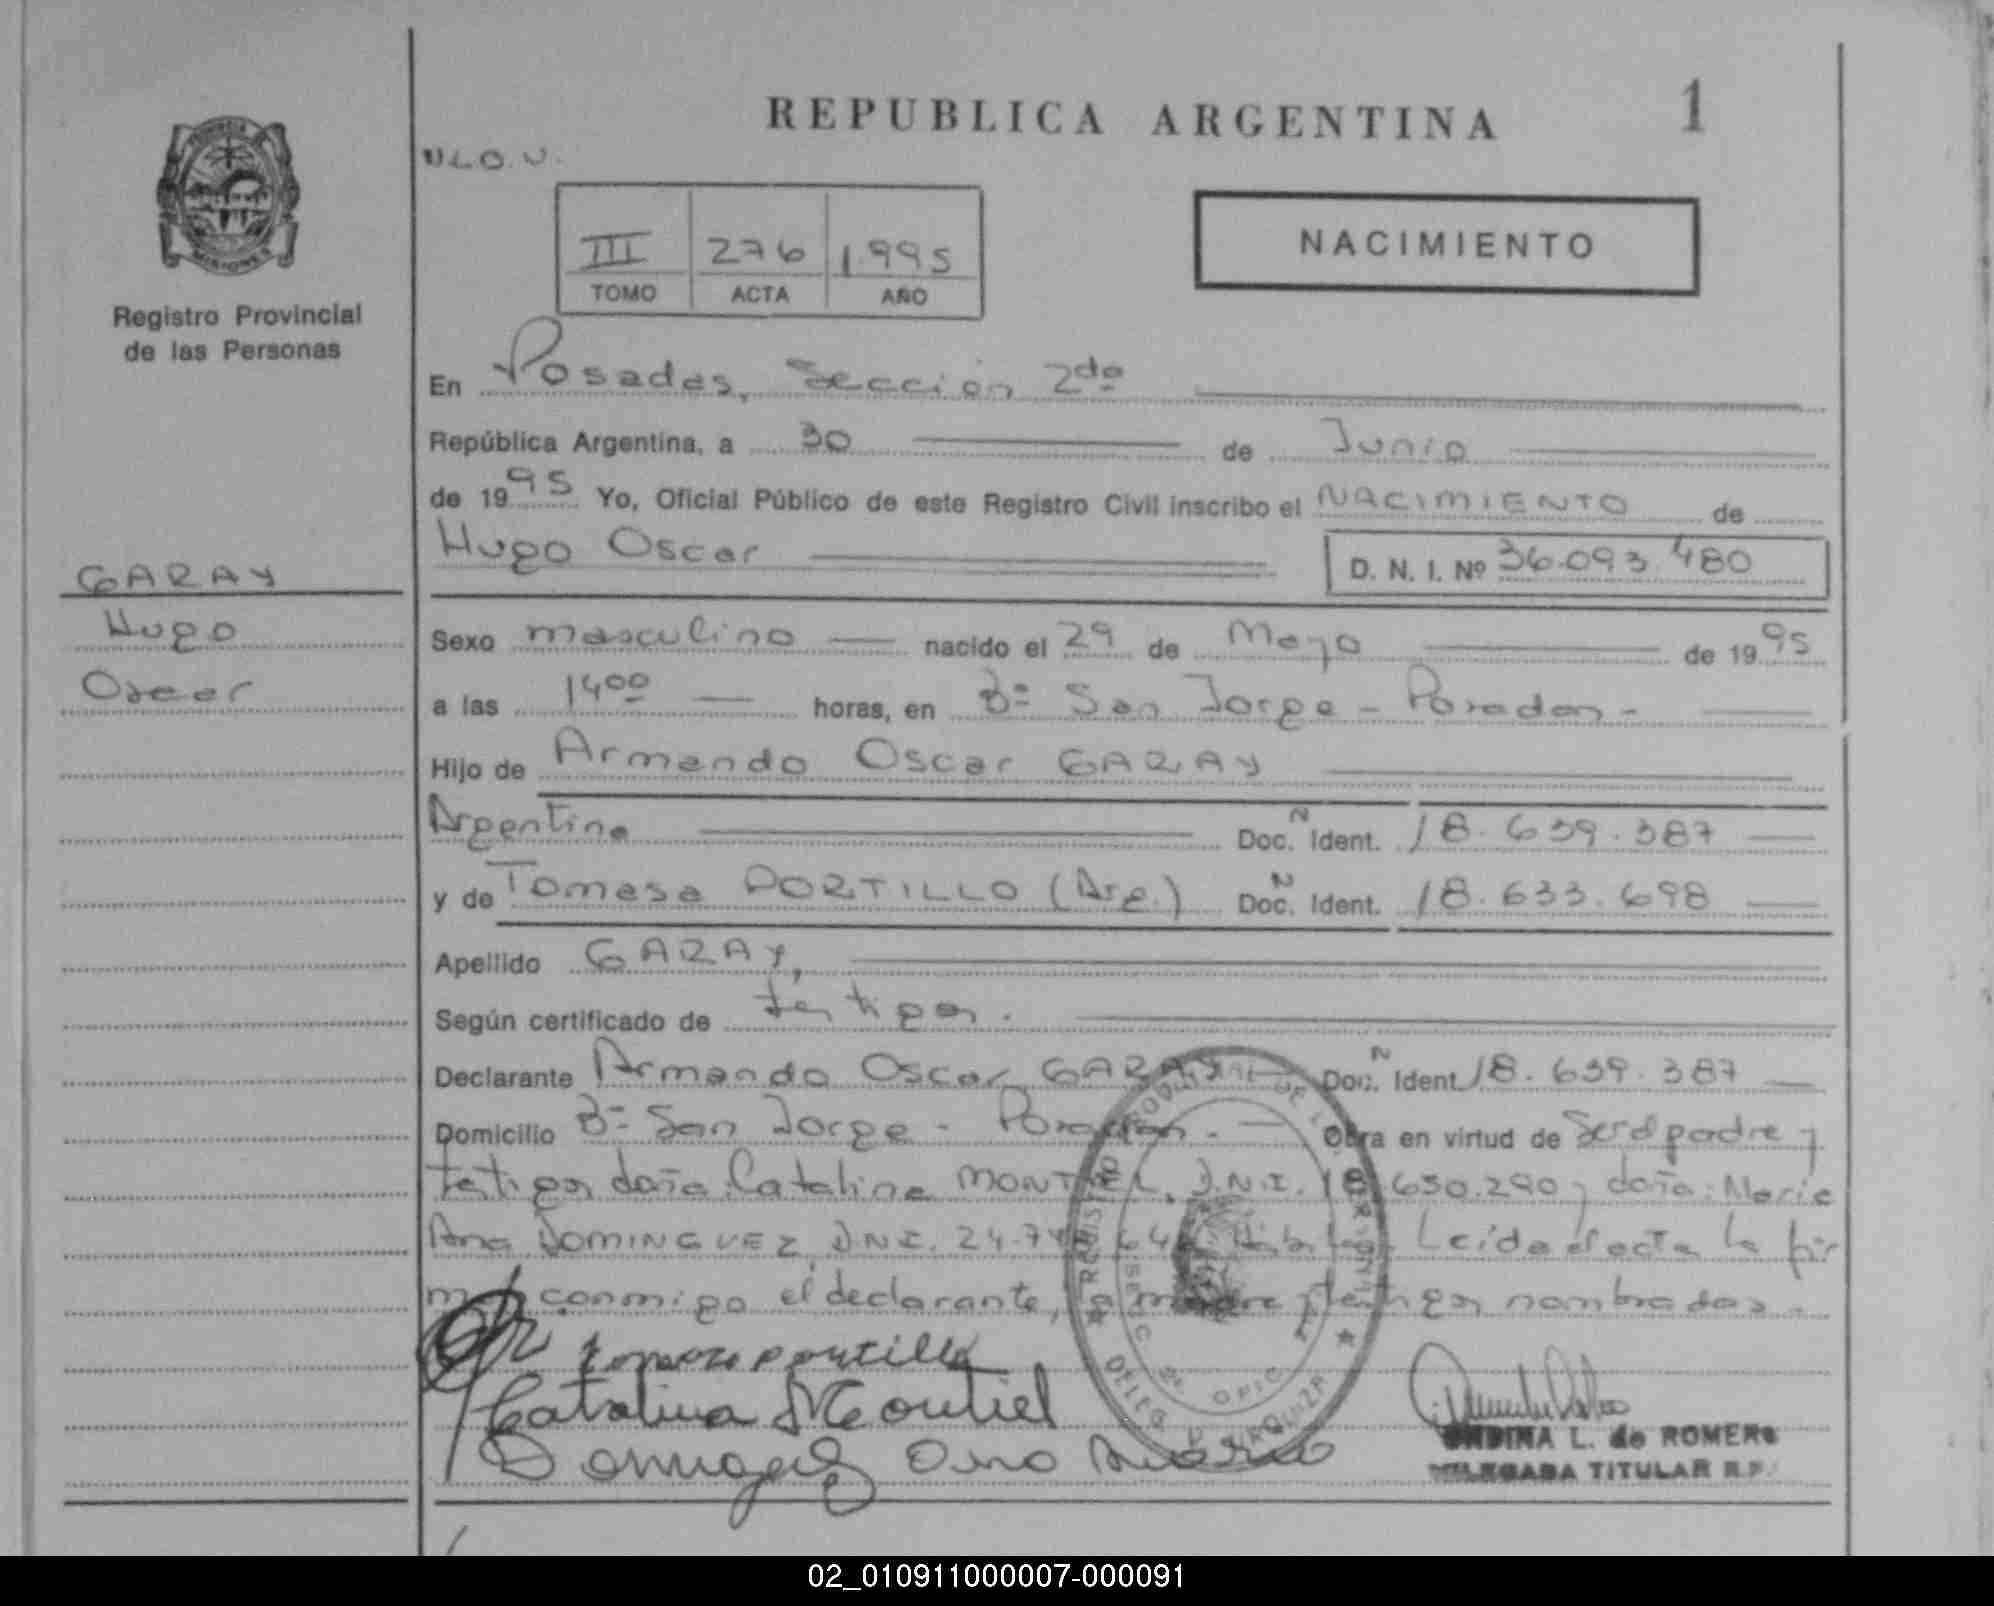 REPUBLICA ARGENTINA
1
PROVINCIA
MISIONES
Registro Provincial
de las Personas
III 276 1.995
TOMO ACTA AÑO
NACIMIENTO
En Posadas, Sección 2da
República Argentina, a 30 de Junio
de 1995 Yo, Oficial Público de este Registro Civil inscribo el NACIMIENTO de
Hugo Oscar D. N. I. Nº 36.093.480
GARAY
Hugo
Oscar
Sexo masculino nacido el 29 de Mayo de 1995
a las 1400 horas, en Bº San Jorge - Posadas -
Hijo de Armando Oscar GARAY
Argentina Doc. N Ident. 18.639.387
y de Tomasa PORTILLO (Arg.) Doc. N Ident. 18.633.698
Apellido GARAY,
Según certificado de testigos.
Declarante Armando Oscar GARAY Doc. N Ident. 18.639.387
Domicilio Bº San Jorge - Posadas. - Obra en virtud de Ser el padre y
testigos doña: Catalina MONTIEL, D.N.I. 18.650.290 y doña: Maria
Ana DOMINGUEZ, D.N.I. 24.7 Leida el acta la fir
man conmigo el declarante, la madre y testigos nombrados.-
tomasa portillo
Catalina Montiel
Dominguez Ana Maria
ONDINA L. de ROMERO
DELEGADA TITULAR R.P.
02_010911000007-000091